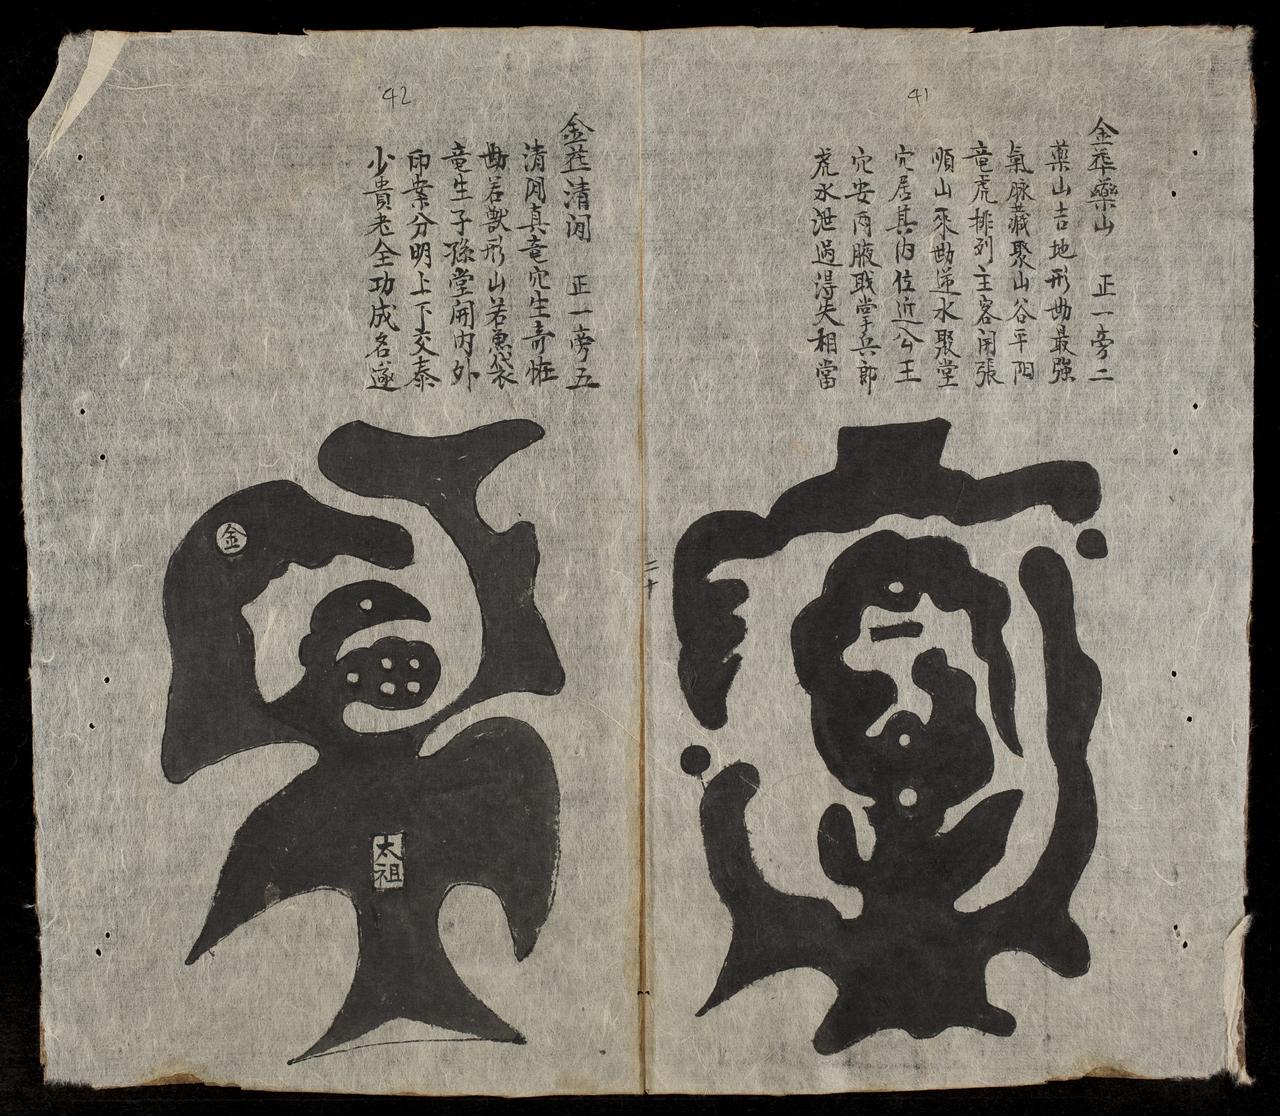 41
金華藥山 正一旁二
藥山吉地形勘最強
氣脉藏聚山谷平阳
竜虎排列主客開張
順山来勘逆水聚堂
穴居其內位近公王
穴安两腋戢掌兵郎
虎水泄過淂失相當
二十
42
金華清閑 正一旁五
清閑真竜穴生竒恠
勘若獸形山若魚袋
竜生子孫堂開內外
印案分明上下交泰
少貴老全功成名遂
金
太祖